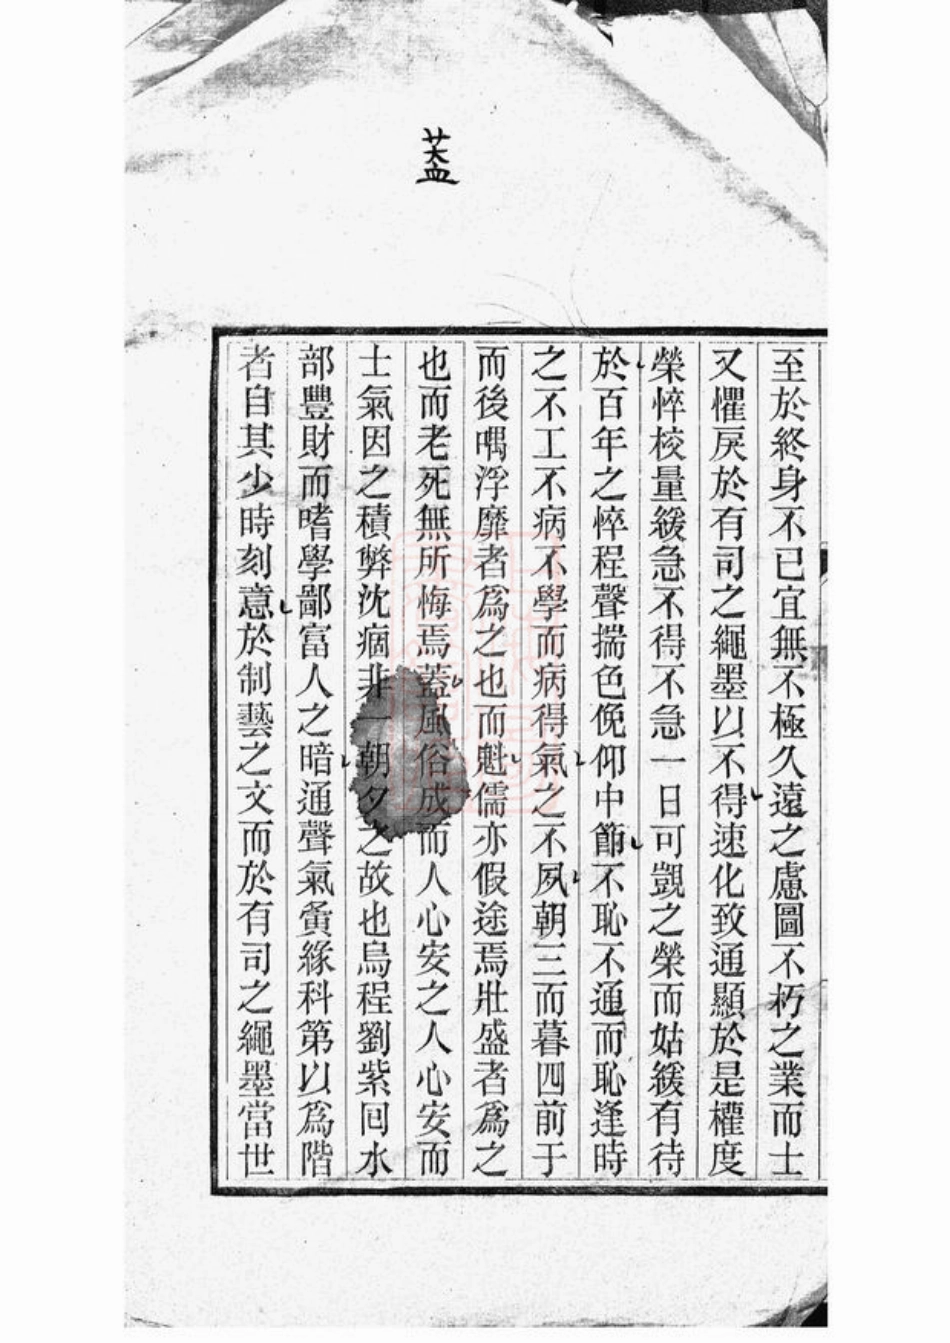 葢
至於終身不已宜無不極久遠之慮圖不朽之業而士
又懼戾於有司之繩墨以不得速化致通顯於是權度
榮悴校量緩急不得不急一日可覬之榮而姑緩有待
於百年之悴程聲揣色俛仰中節不恥不通而恥逢時
之不工不病不學而病得氣之不夙朝三而暮四前于
而後喁浮靡者爲之也而魁儒亦假途焉壯盛者爲之
也而老死無所悔焉葢風俗成而人心安之人心安而
士氣因之積弊沈痼非一朝夕之故也烏程劉紫回水
部豐財而嗜學鄙富人之暗通聲氣夤緣科第以爲階
者自其少時刻意於制藝之文而於有司之繩墨當世